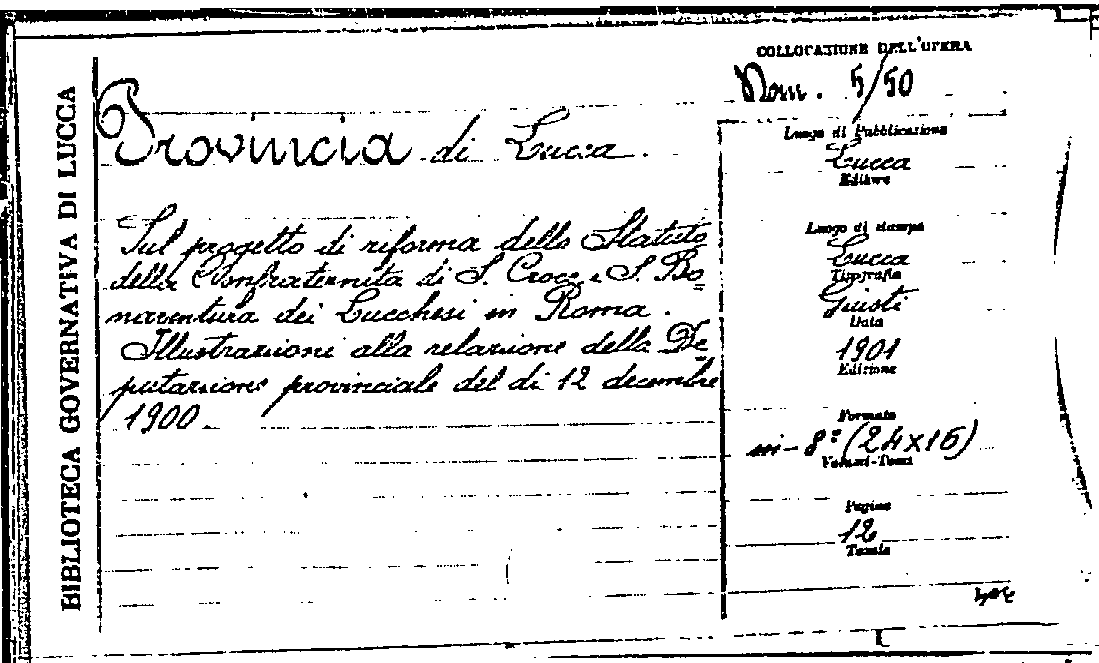 BIBLIOTECA GOVERNATIVA DI LUCCA
Provincia di Lucca.
Sul progetto di riforma dello Statuto
della Confraternita di S. Croce e S. Bo=
naventura dei Lucchesi in Roma.
Illustrazioni alla relazione della De=
putazione provinciale del dì 12 decembre
1900.
COLLOCAZIONE DELL'OPERA
5/50
Luogo di Pubblicazione
Lucca
Editore
Luogo di stampa
Lucca
Tipografia
Giusti
Data
1901
Edizione
Formato
in-8° (24x16)
Volumi-Tomi
Pagine
12
Tavole